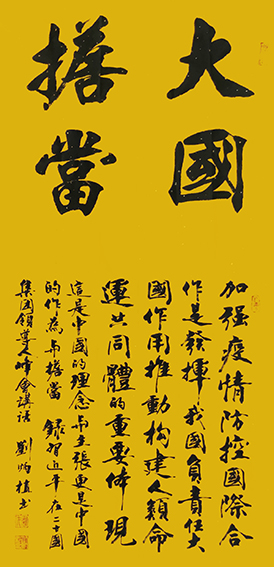 大國
擔當
加强疫情防控國際合
作是發揮我國負責任大
國作用推動構建人類命
運共同體的重要体現
這是中國的理念與主張更是中國
的作為与擔當 録習近平在二十國
集团領導人峰會講話 劉炳植書